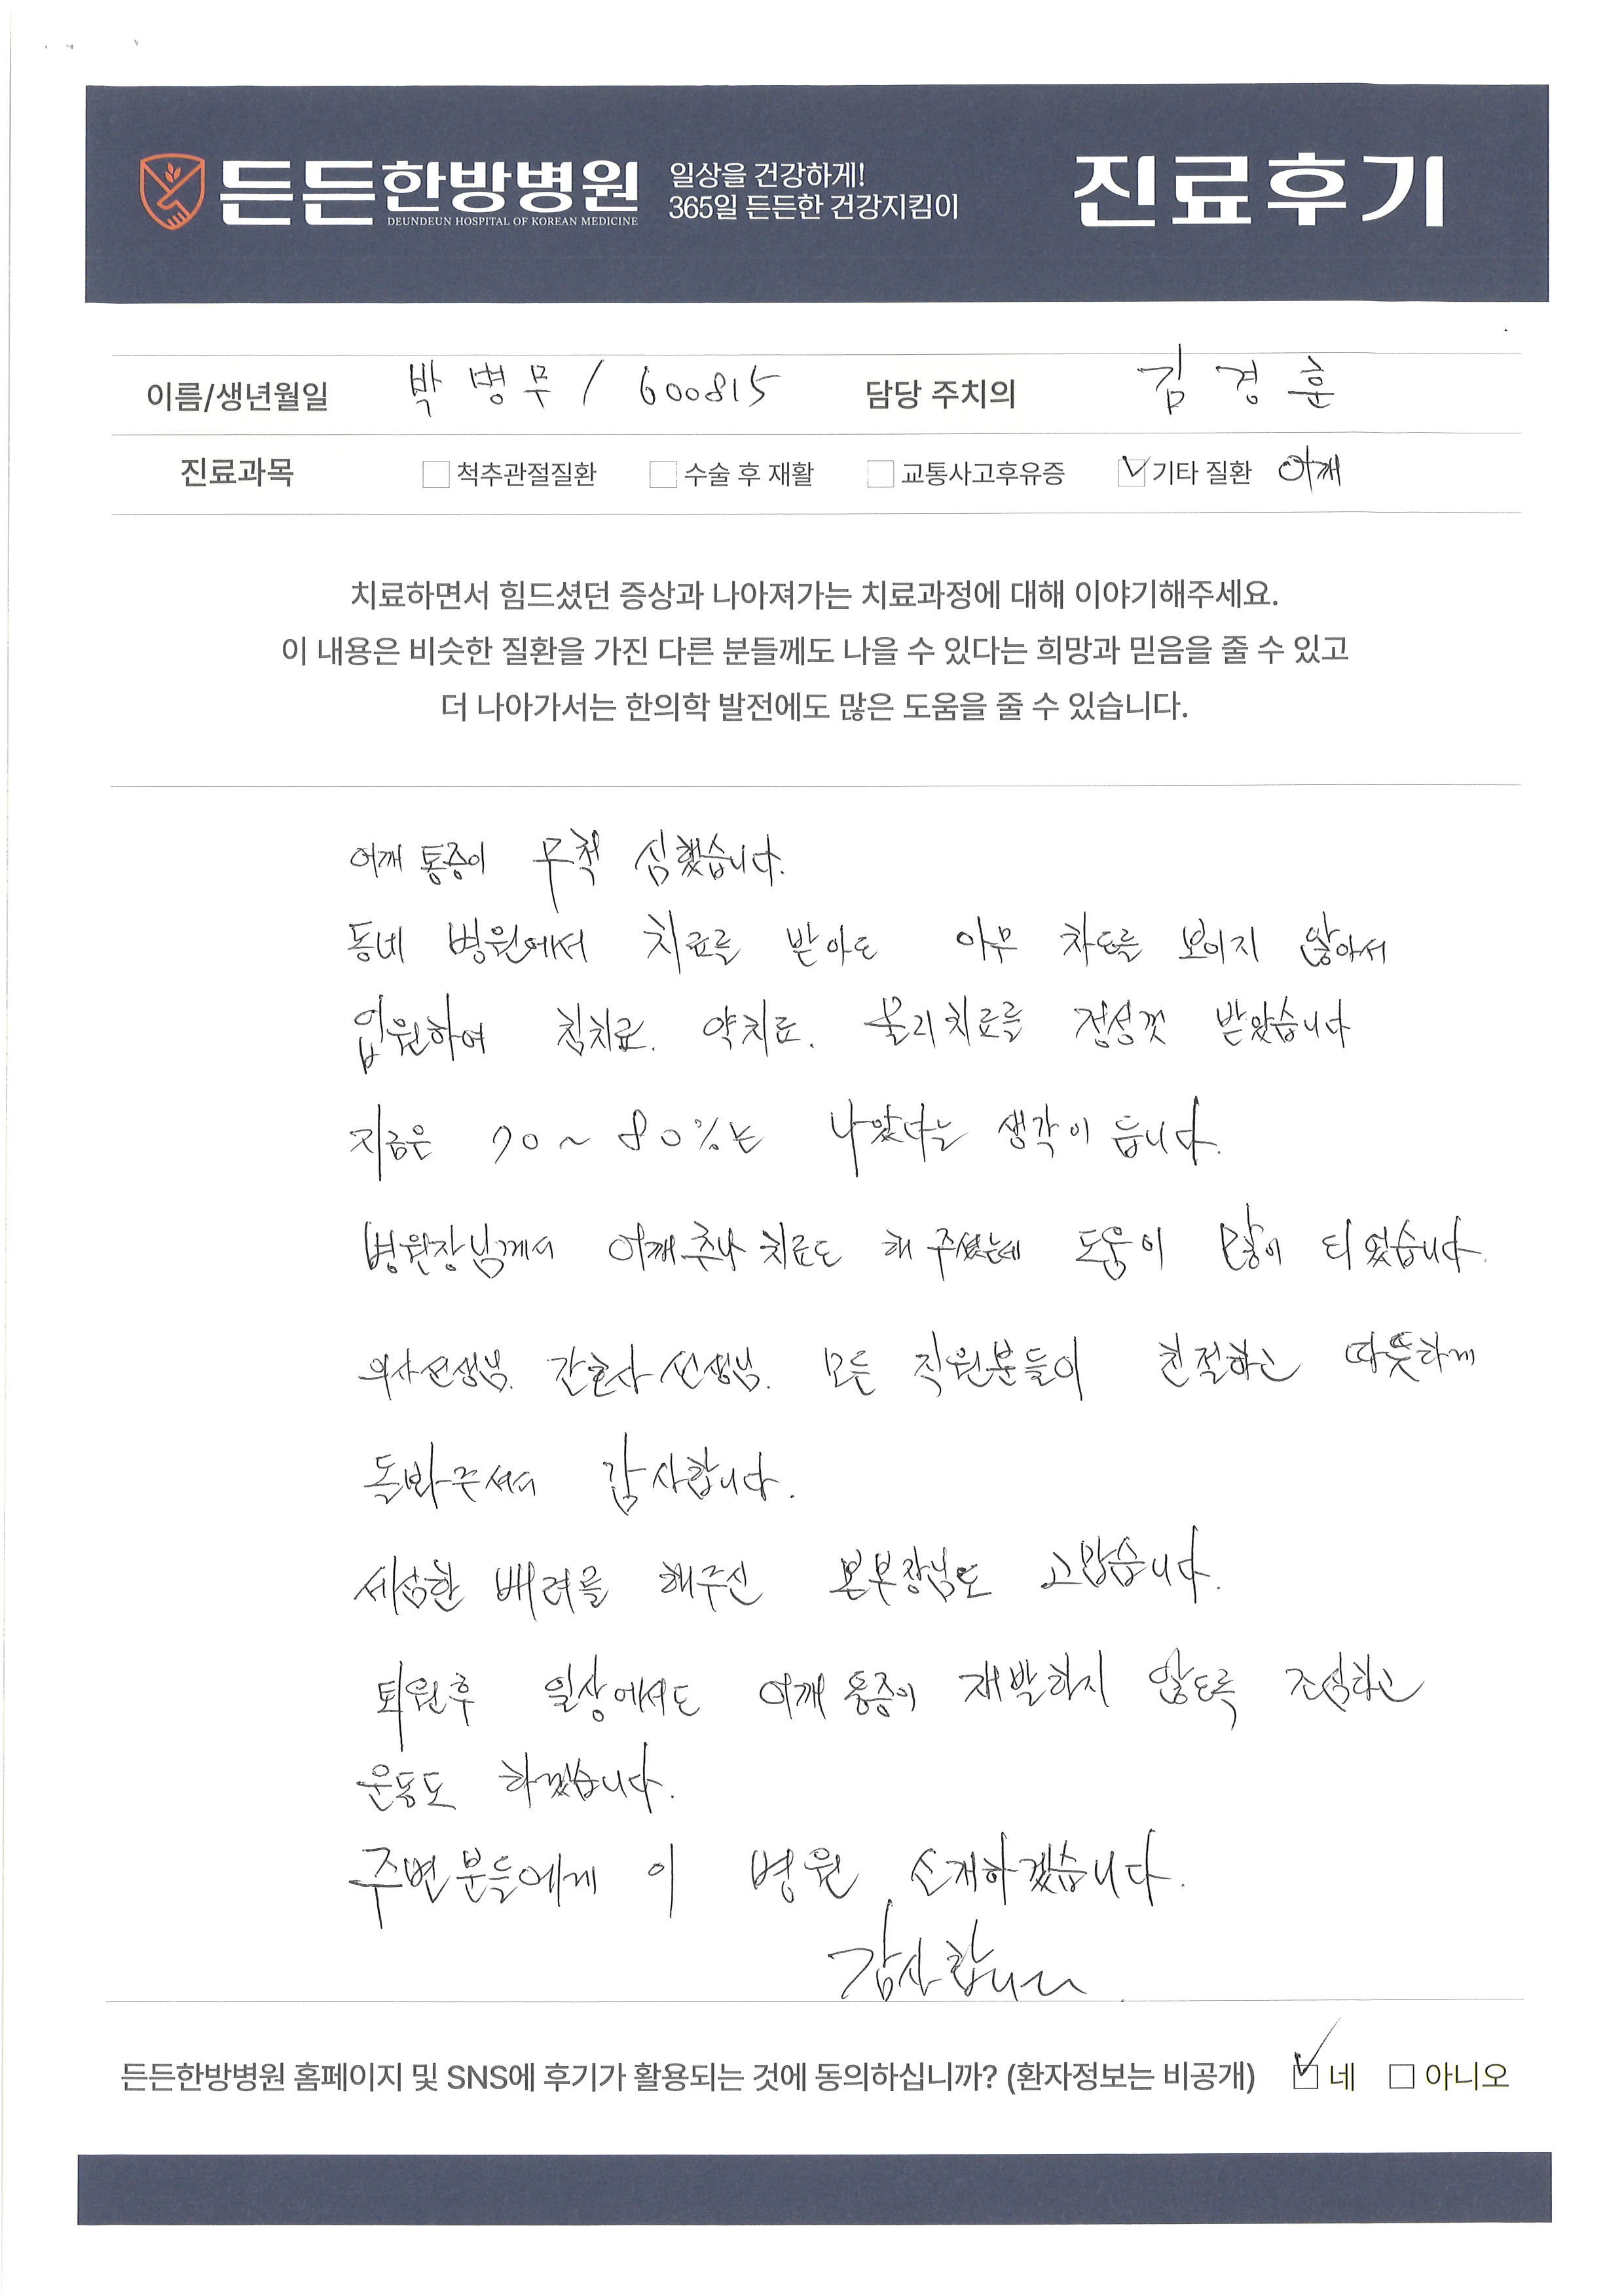 든든한방병원
DEUNDEUN HOSPITAL OF KOREAN MEDICINE
일상을 건강하게!
365일 든든한 건강지킴이
진료후기
이름/생년월일 박병무 / 600815 담당 주치의 김경훈
진료과목 척추관절질환 수술 후 재활 교통사고후유증 기타 질환 어깨
치료하면서 힘드셨던 증상과 나아져가는 치료과정에 대해 이야기해주세요.
이 내용은 비슷한 질환을 가진 다른 분들께도 나을 수 있다는 희망과 믿음을 줄 수 있고
더 나아가서는 한의학 발전에도 많은 도움을 줄 수 있습니다.
어깨 통증이 무척 심했습니다.
동네 병원에서 치료를 받아도 아무 차도를 보이지 않아서
입원하여 침치료. 약치료. 물리치료를 정성껏 받았습니다
지금은 70~80%는 나았다는 생각이 듭니다.
병원장님께서 어깨추나 치료도 해 주셨는데 도움이 많이 되었습니다.
의사선생님. 간호사 선생님. 모든 직원분들이 친절하고 따뜻하게
돌봐주셔서 감사합니다.
세심한 배려를 해주신 본부장님도 고맙습니다.
퇴원후 일상에서도 어깨 통증이 재발하지 않도록 조심하고
운동도 하겠습니다.
주변분들에게 이 병원 소개하겠습니다.
감사합니다
든든한방병원 홈페이지 및 SNS에 후기가 활용되는 것에 동의하십니까? (환자정보는 비공개) 네 아니오